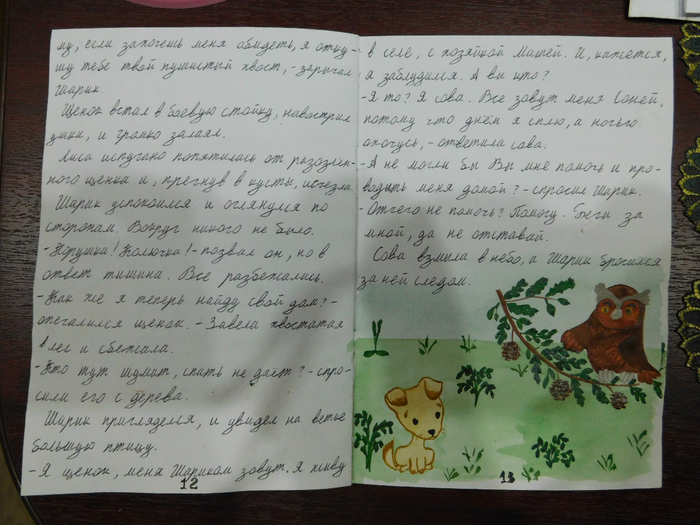 му, если захочешь меня обидеть, я отку-
шу тебе твой пушистый хвост, - зарычал
Шарик.
Щенок встал в боевую стойку, навострил
ушки, и громко залаял.
Лиса испугано попятилась от разозлен-
ного щенка и, прегнув в кусты, исчезла.
Шарик успокоился и оглянулся по
сторонам. Вокруг никого не было.
- Норушка! Колючка! - позвал он, но в
ответ тишина. Все разбежались.
- Как же я теперь найду свой дом? -
опечалился щенок. - Завела хвостатая
в лес и сбежала.
- Кто тут шумит, спать не даёт? - спро-
сили его с дерева.
Шарик пригляделся, и увидел на ветке
большую птицу.
- Я щенок, меня Шариком зовут. Я живу
12
в селе, с хозяйкой Машей. И, кажется,
я заблудился. А вы кто?
- Я то? Я сова. Все зовут меня Соней,
потому что днём я сплю, а ночью
охочусь, - ответила сова.
- А не могли бы Вы мне помочь и про-
водить меня домой? - спросил Шарик.
- Отчего не помочь? Помогу. Беги за
мной, да не отставай.
Сова взмыла в небо, а Шарик бросился
за ней следом.
13